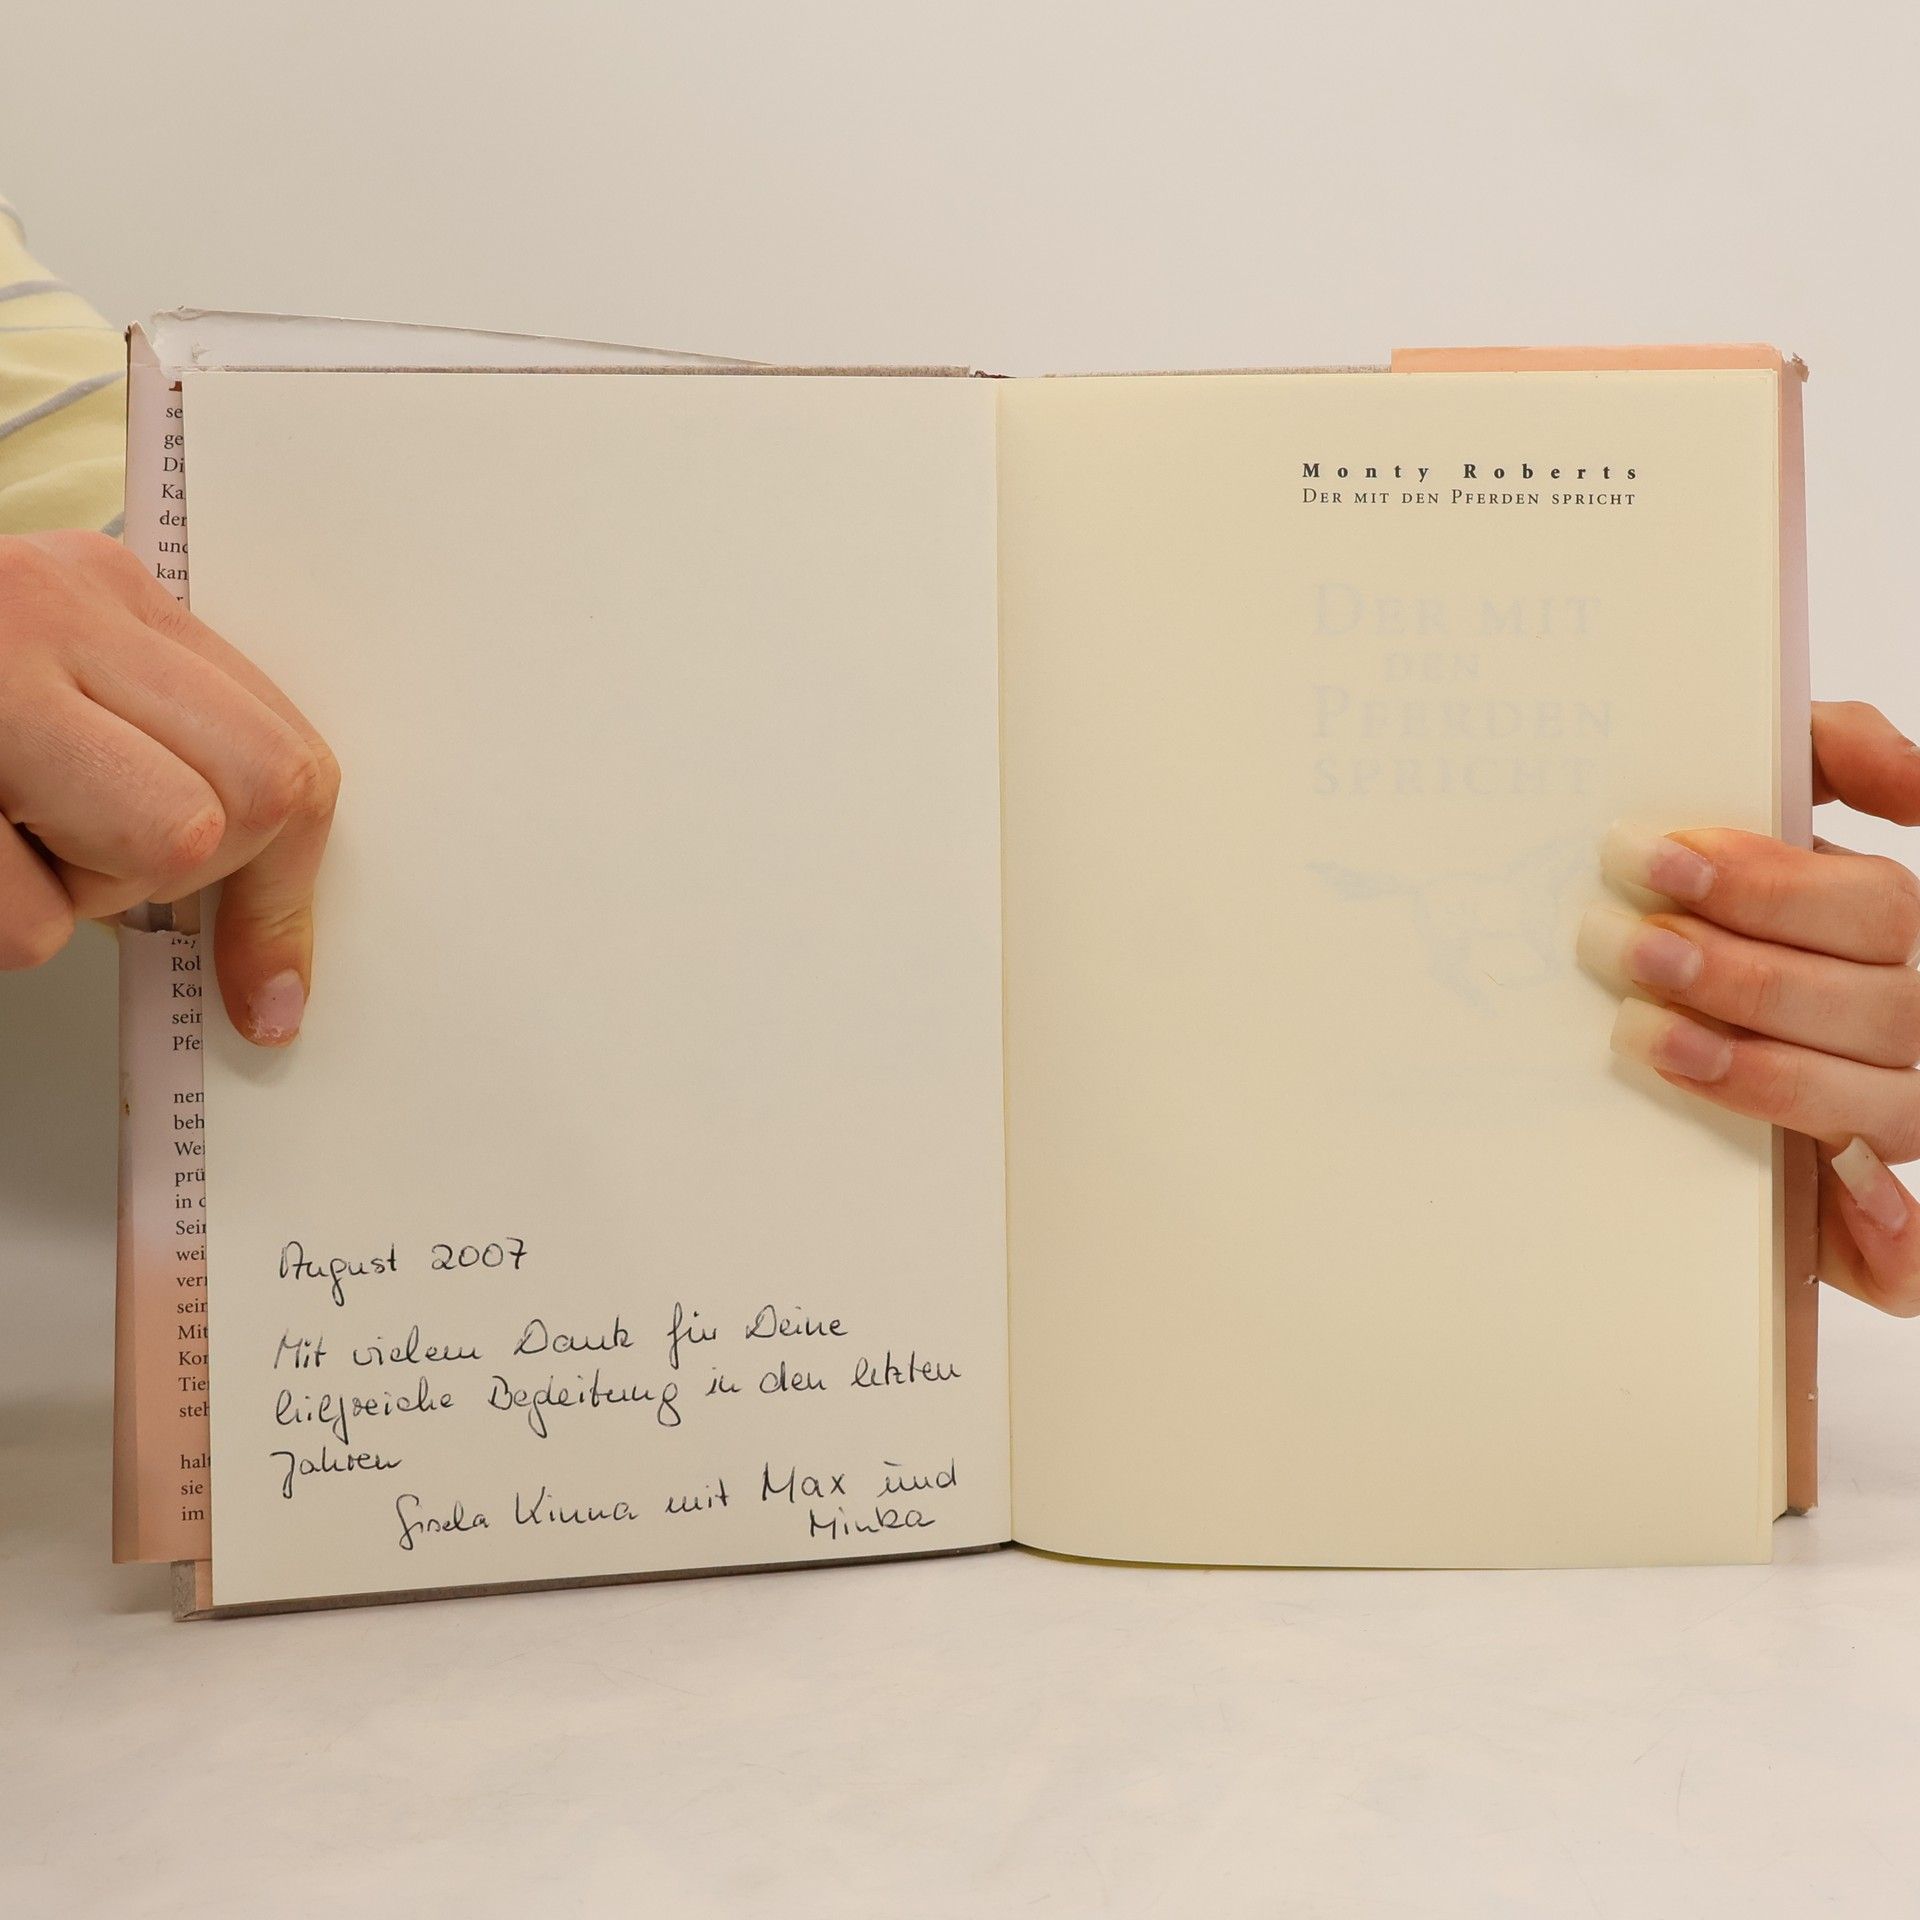 se
ge
Di
Ka
der
und
kan
Rob
Kör
sein
Pfe
nen
beh
Wei
prü
in d
Sein
wei
verr
sein
Mit
Kor
Tie
steh
halt
sie
im
August 2007
Mit vielem Dank für Deine
hilfreiche Begleitung in den letzten
Jahren
Gisela Kinna mit Max und
Minka
Monty Roberts
DER MIT DEN PFERDEN SPRICHT
DER MIT
DEN
PFERDEN
SPRICHT